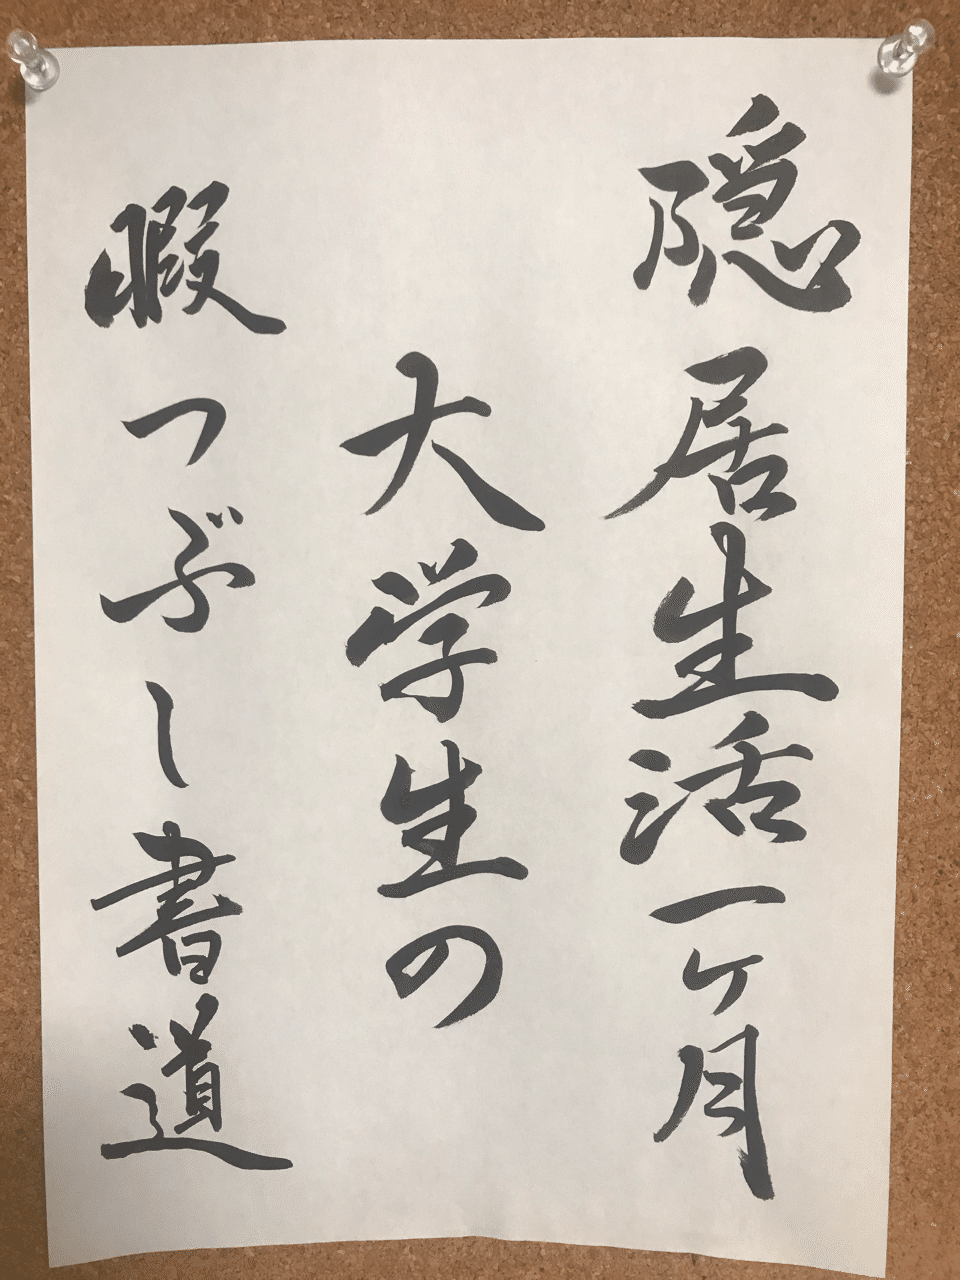 隠居生活一ヶ月
大学生の
暇つぶし書道